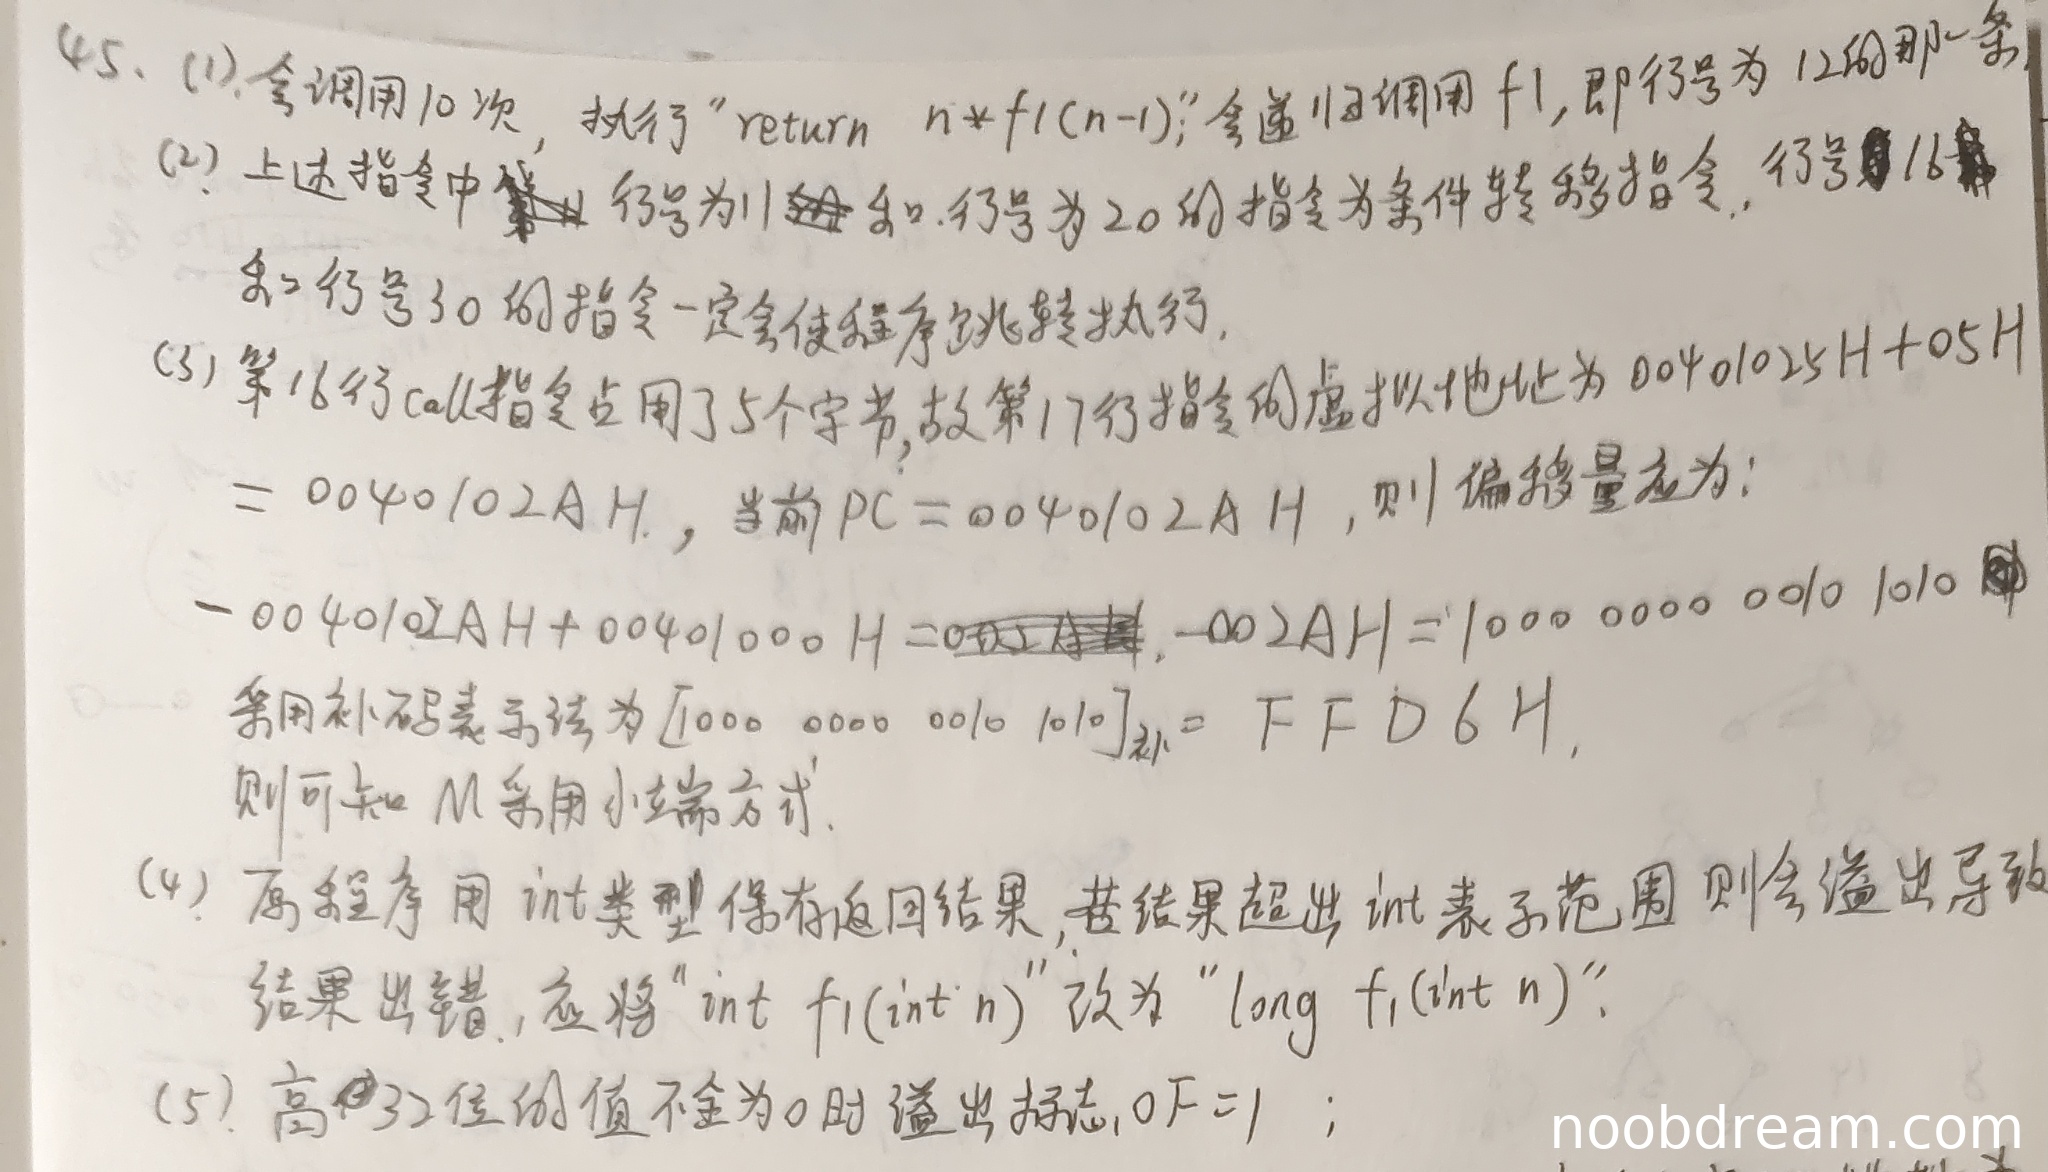 45. (1). 会调用10次, 执行"return n*f1(n-1);"会递归调用f1, 即行号为12的那一条.
(2) 上述指令中 行号为11 和.行号为20的指令为条件转移指令, 行号16
和行号30的指令一定会使程序跳转执行.
(3) 第16行call指令占用了5个字节,故第17行指令的虚拟地址为00401025H+05H
= 0040102AH., 当前PC=0040102AH, 则偏移量应为:
-0040102AH+00401000H= -002AH=1000 0000 0010 1010
采用补码表示法为[1000 0000 0010 1010]补= FFD6H,
则可知M采用小端方式.
(4) 原程序用int类型保存返回结果,若结果超出int表示范围则会溢出导致
结果出错., 应将"int f1(int n)"改为"long f1(int n)".
(5). 高32位的值不全为0时溢出标志,OF=1 ;
noobdream.com